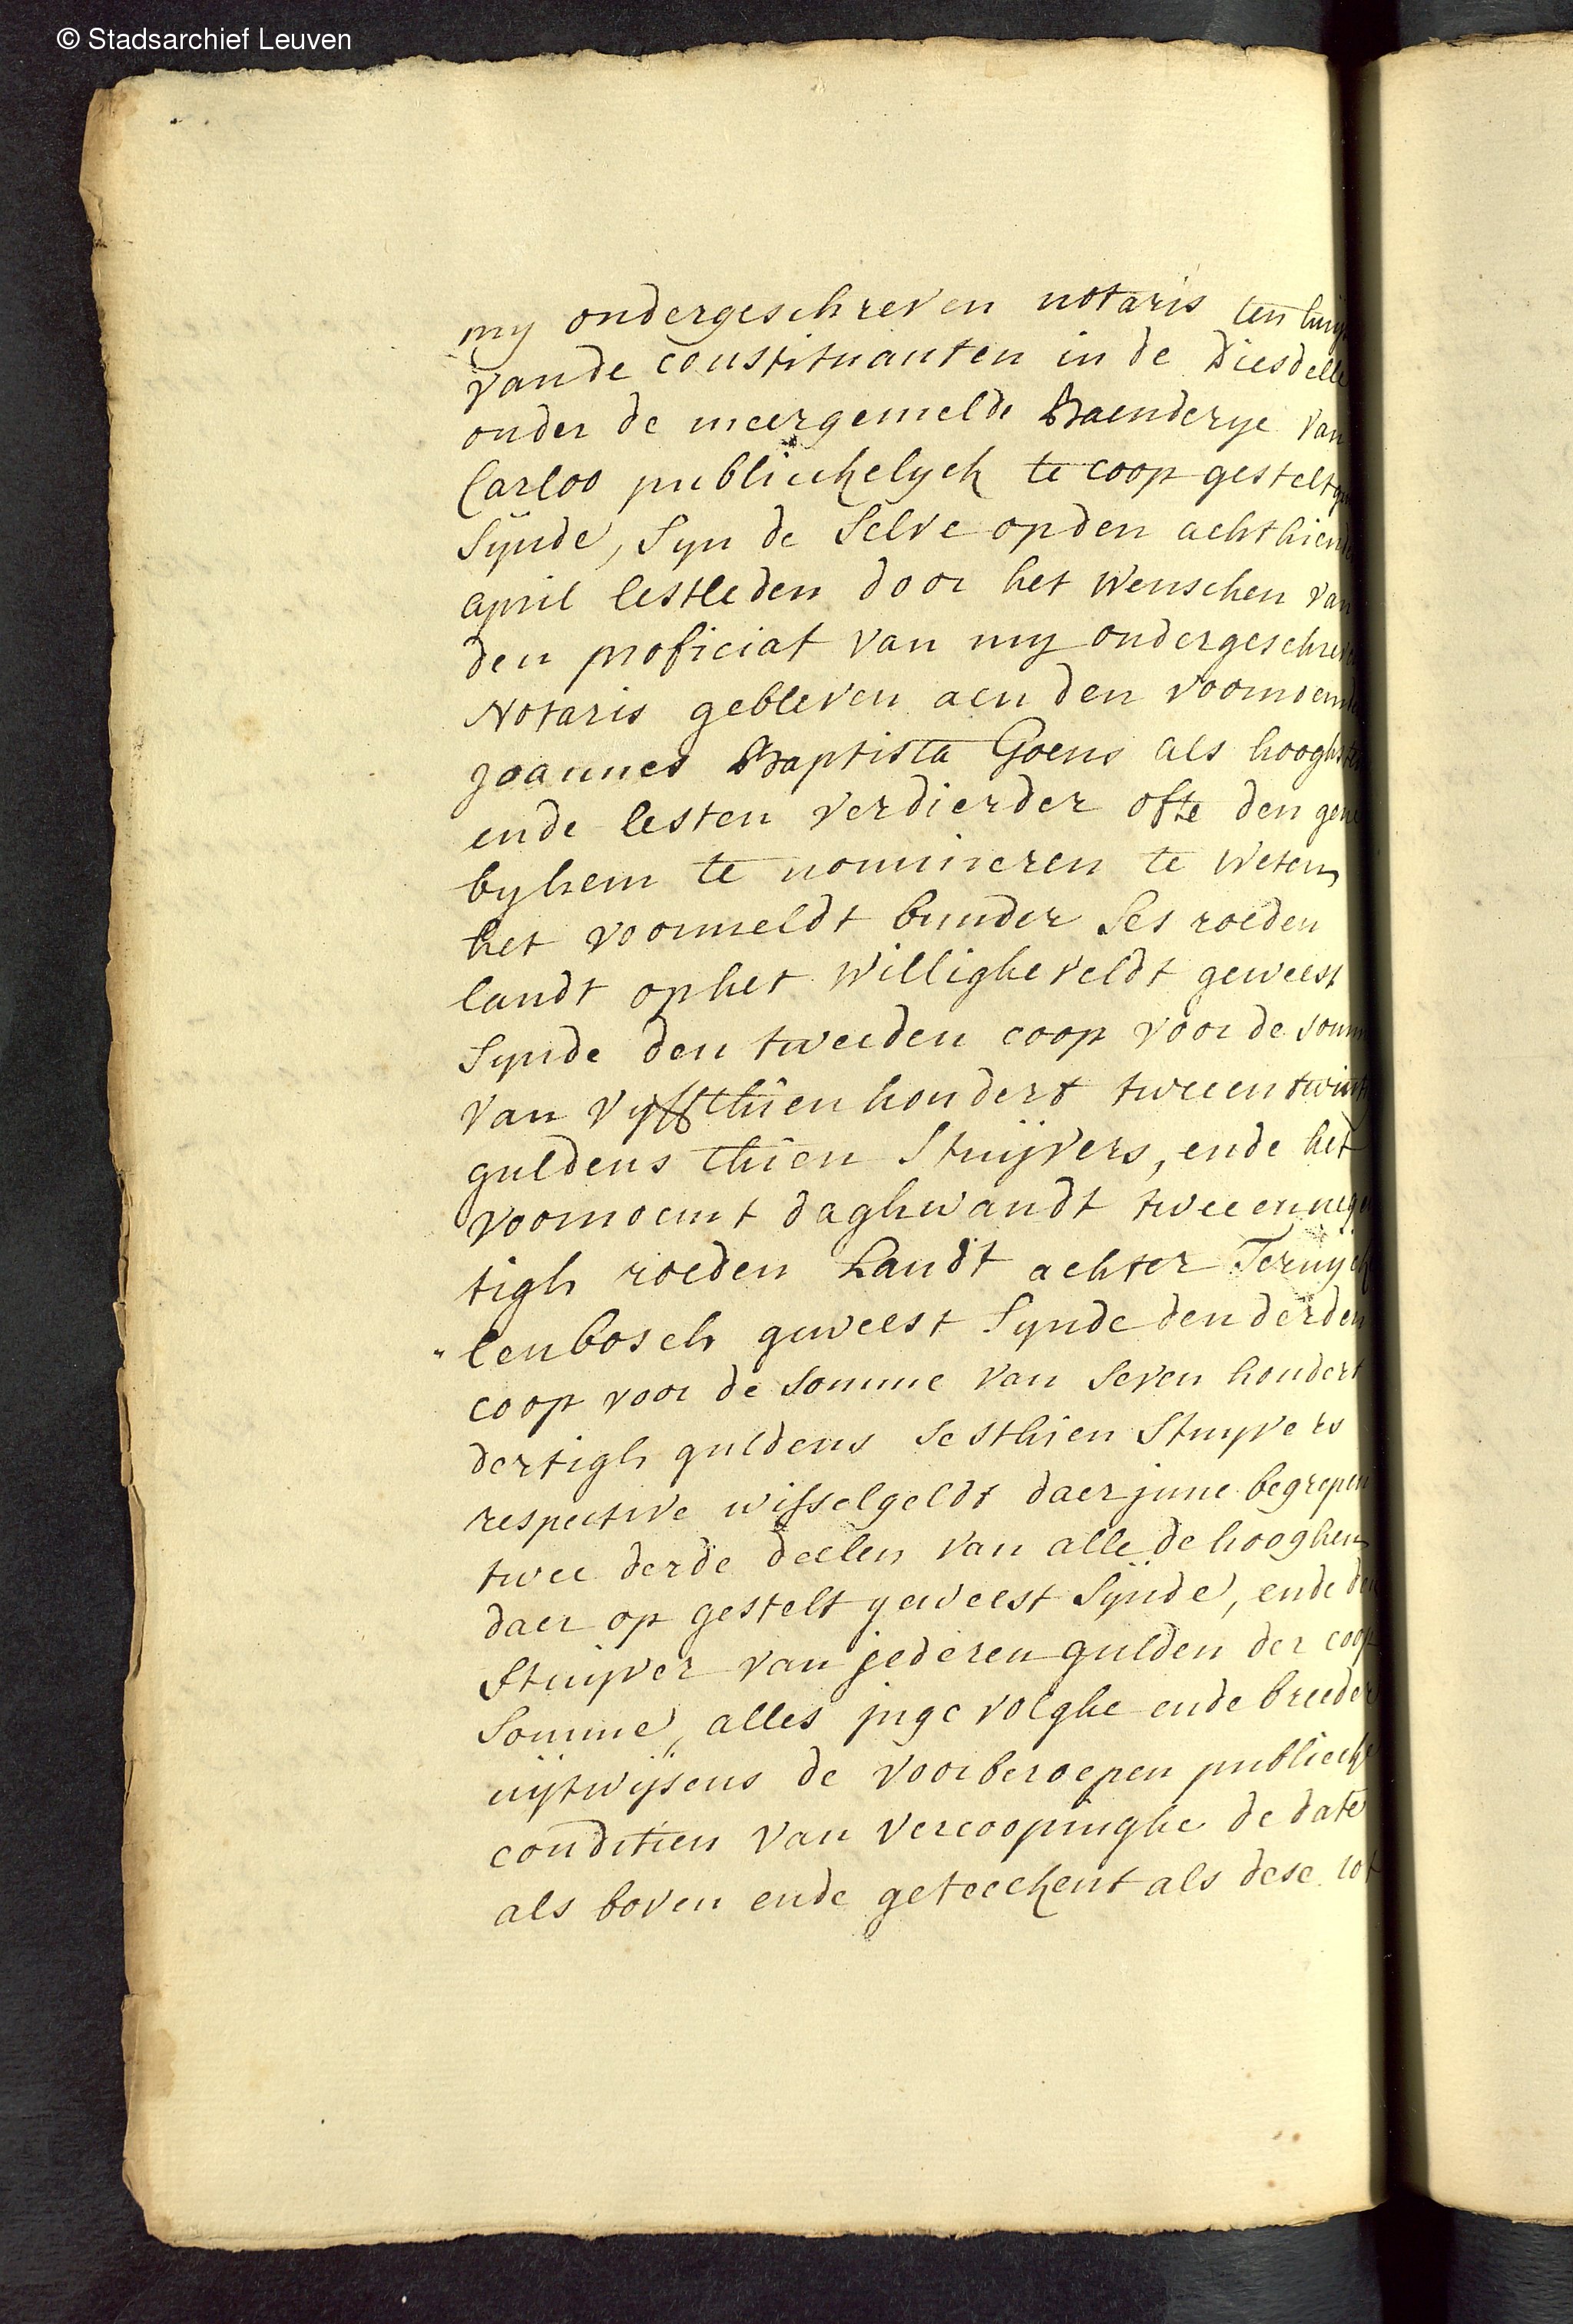 © Stadsarchief Leuven
my ondergeschreven notaris ten huys
vande constituanten in de Diesdelle
onder de meergemelde Baenderye van
Carloo publieckelyck te coop gestelt
sÿnde, syn de selve opden achthiende
april lestleden door het wenschen van
den proficiat van my ondergeschreven
Notaris gebleven aen den voornoemde
joannes Baptista Goens als hooghsten
ende lesten verdierder ofte den gene
byhem te nomineren te weten
het voormeldt bunder ses roeden
landt ophet Willigheveldt geweest
synde den tweeden coop voor de somme
van vyffthien hondert tweentwint
guldens thien Stuyvers, ende het
voornoemt daghwandt tweennegen
tigh roeden Landt achter Teruyck
lenbosch geweest synde den derden
coop voor de somme van seven hondert
dertigh guldens sesthien Stuyvers
respective wisselgeldt daer jnne begrepen
twee derde deelen van alle de hooghen
daer op gestelt geweest sÿnde, ende den
Stuyver van jederen gulden der coop
somme, alles jngevolghe ende breeder
uÿtwÿsens de voorberoepen publiecke
conditien van vercoopinghe de date
als boven ende geteeckent als dese tot